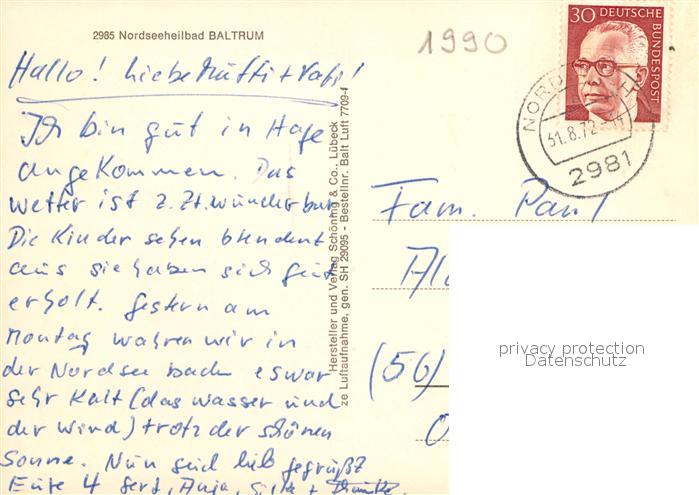 2985 Nordseeheilbad BALTRUM
1990
30 DEUTSCHE
BUNDESPOST
NORD
31.8.72
2981
Hallo! Liebe Mutti + Vati!
Ich bin gut in Hage
angekommen. Das
Wetter ist z. Zt. wunderbar
Die Kinder sehen blendent
aus sie haben sich gut
erholt. Gestern am
Montag wahren wir in
der Nordsee baden es war
sehr kalt (das wasser und
der wind) trotz der schönen
Sonne. Nun seid lieb gegrüßt
Eure 4 Gerd, Anja, Silke +
Hersteller und Verlag Schöning & Co., Lübeck
ze Luftaufnahme, gen. SH 29095 - Bestellnr. Balt Luft 7709-f
Fam. Paul
(56)
privacy protection
Datenschutz